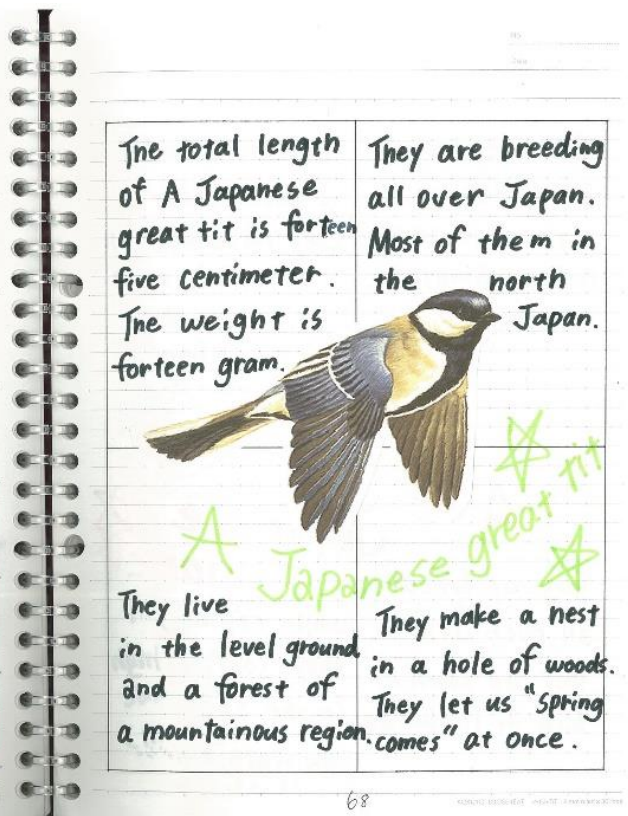 The total length
of A Japanese
great tit is forteen
five centimeter.
The weight is
forteen gram.
They are breeding
all over Japan.
Most of them in
the north
Japan.
A Japanese great tit
They live
in the level ground
and a forest of
a mountainous region.
They make a nest
in a hole of woods.
They let us "spring
comes" at once.
68